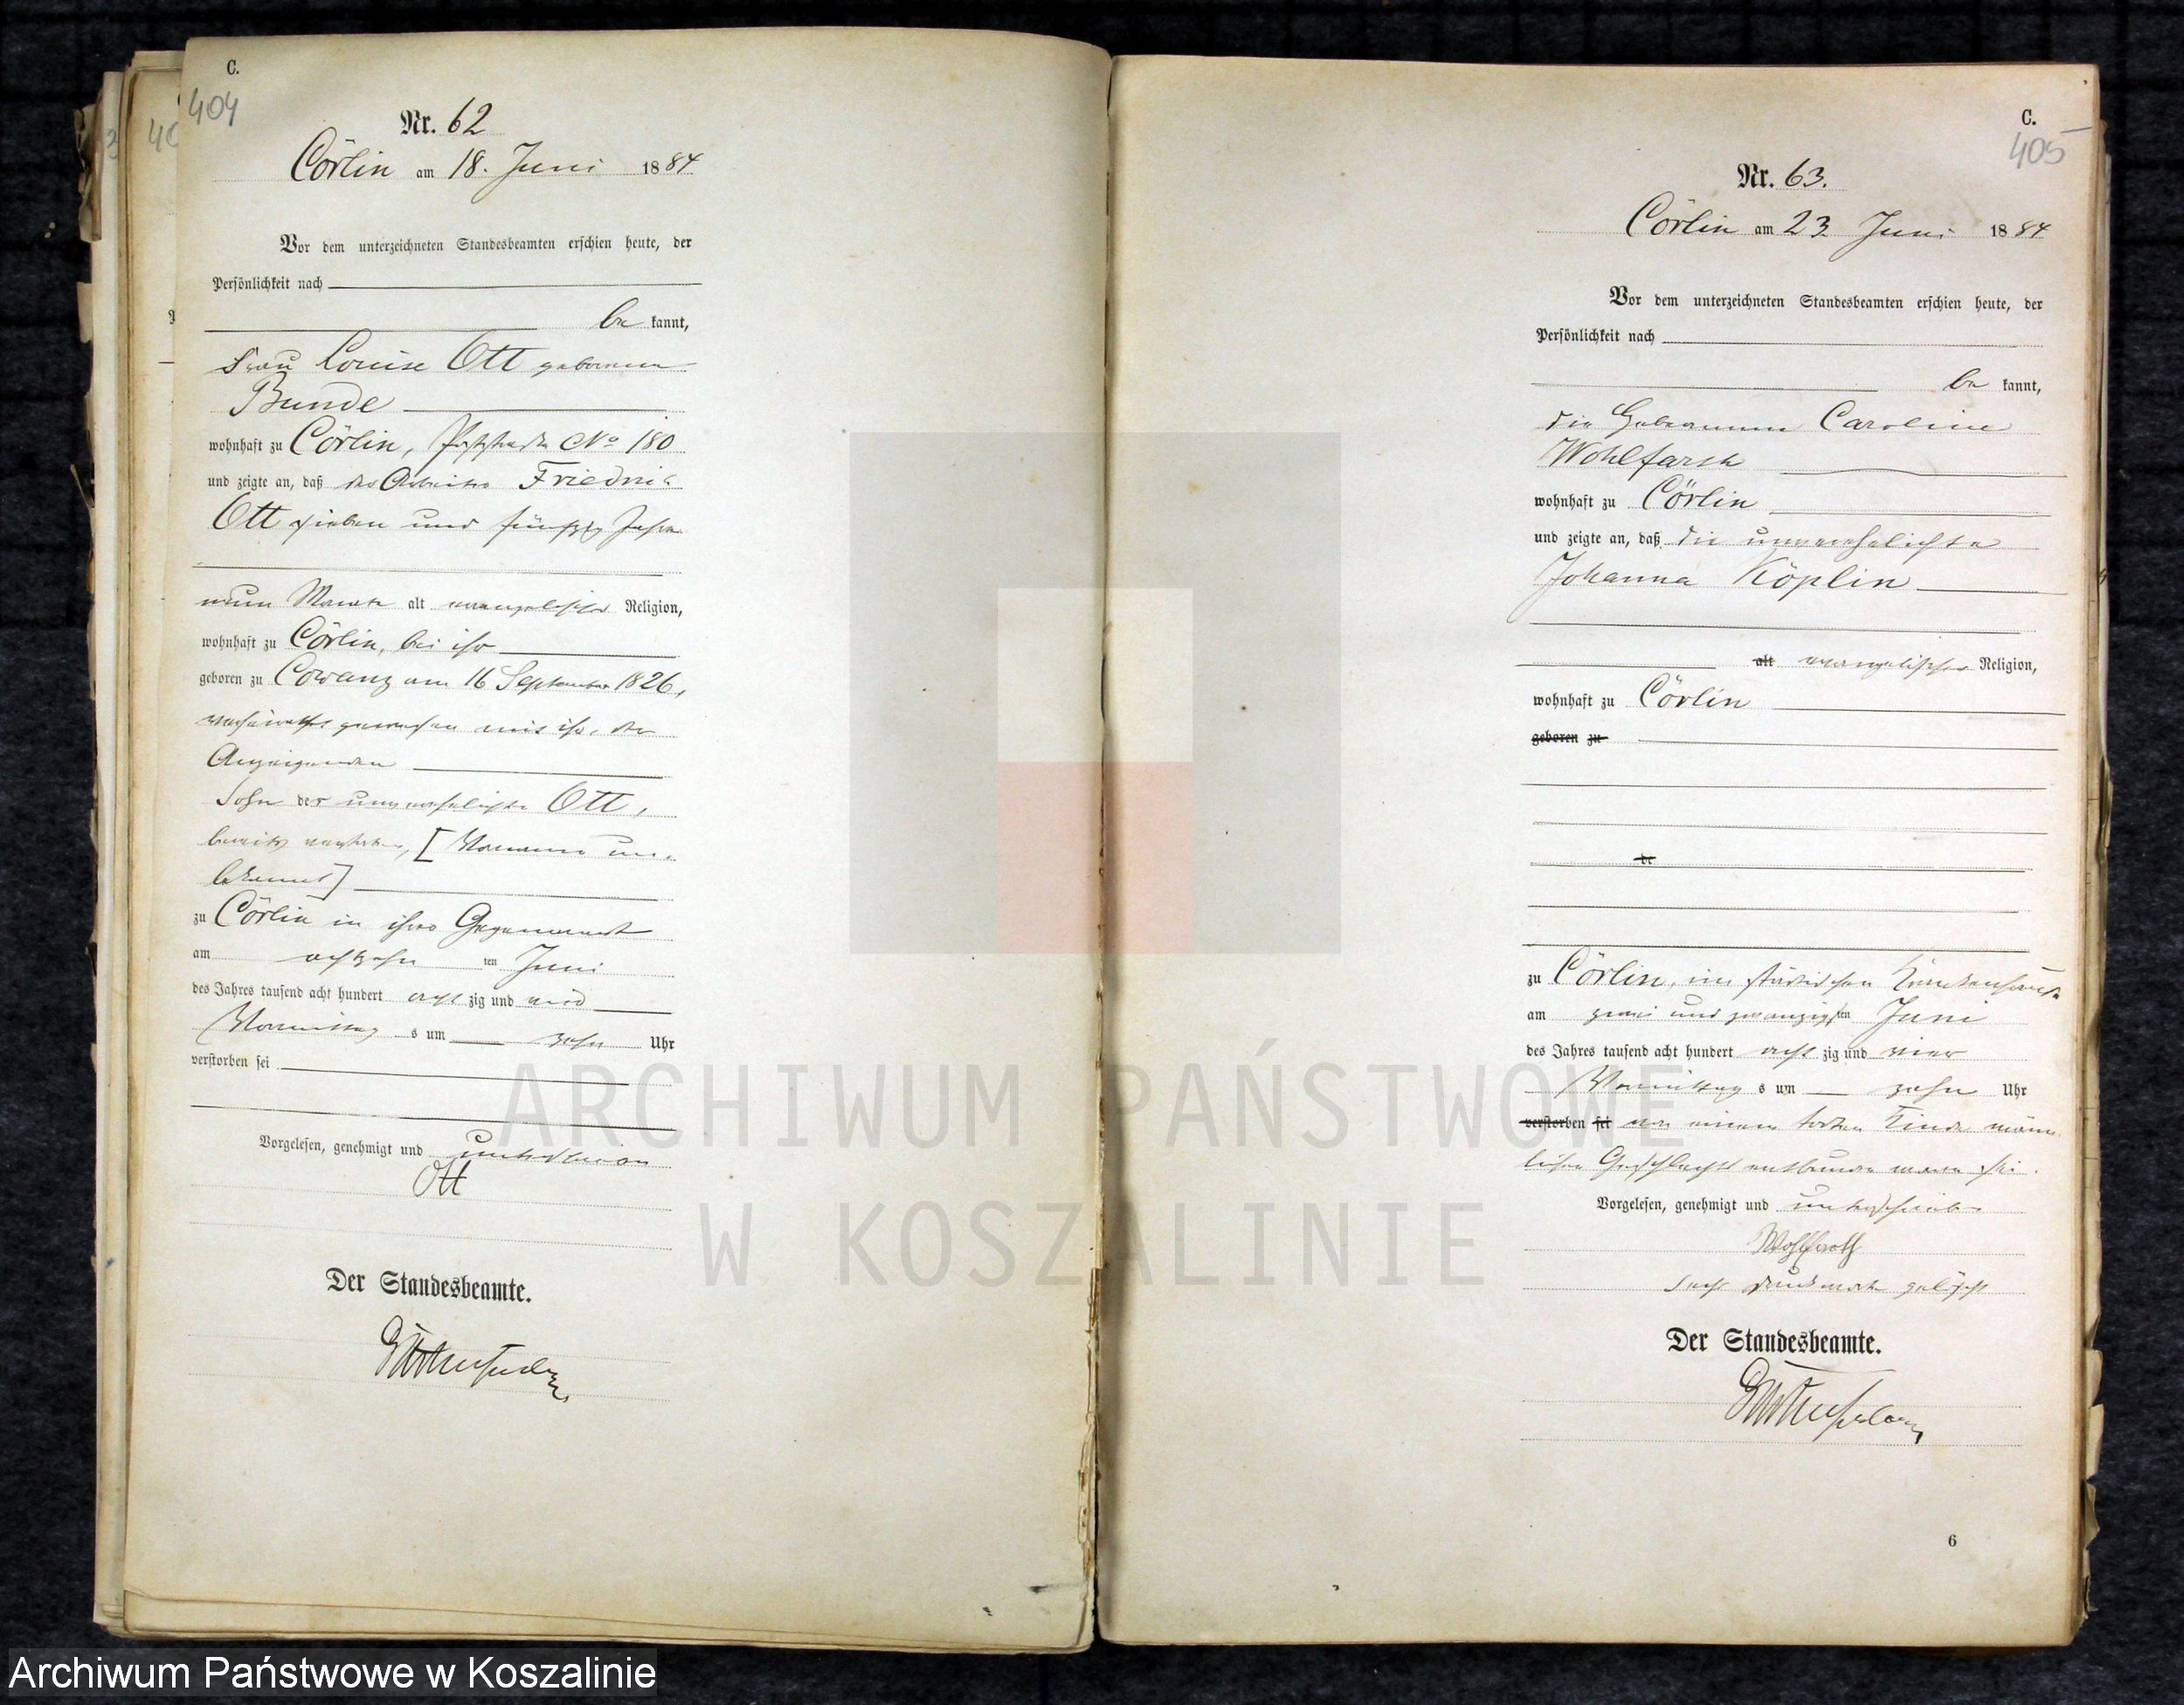 C.
404
Nr. 62
Cörlin am 18. Juni 1884
Vor dem unterzeichneten Standesbeamten erschien heute, der
Persönlichkeit nach
be kannt,
Frau Louise Ott geborene
Bunde
wohnhaft zu Cörlin, No 180
und zeigte an, daß der Arbeiter Friedrich
Ott sieben und fünfzig Jahre
neun Monate alt evangelischer Religion,
wohnhaft zu Cörlin, bei ihr
geboren zu Cowanz am 16 September 1826,
verheirathet gewesen mit ihr, der
Anzeigenden
Sohn der unverehelichten Ott,
bereits verstorben, [Vorname un-
bekannt]
zu Cörlin in ihrer Gegenwart
am achtzehn ten Juni
des Jahres tausend acht hundert acht zig und vier
Vormittag s um zehn Uhr
verstorben sei
Vorgelesen, genehmigt und unterschrieben
Ott
Der Standesbeamte.
C.
405
Nr. 63.
Cörlin am 23. Juni 1884
Vor dem unterzeichneten Standesbeamten erschien heute, der
Persönlichkeit nach
be kannt,
die Hebeamme Caroline
Wohlfarth
wohnhaft zu Cörlin
und zeigte an, daß die unverehelichte
Johanna Köplin
alt evangelischer Religion,
wohnhaft zu Cörlin
geboren zu
de
zu Cörlin, im städtischen Krankenhause
am zwei und zwanzigsten Juni
des Jahres tausend acht hundert acht zig und vier
Vormittag s um zehn Uhr
verstorben sei von einem todten Kinde männ-
lichen Geschlechts entbunden worden sei.
Vorgelesen, genehmigt und unterschrieben
Wohlfarth
Sechs Druckworte gelöscht
Der Standesbeamte.
6
ARCHIWUM PAŃSTWOWE
W KOSZALINIE
Archiwum Państwowe w Koszalinie